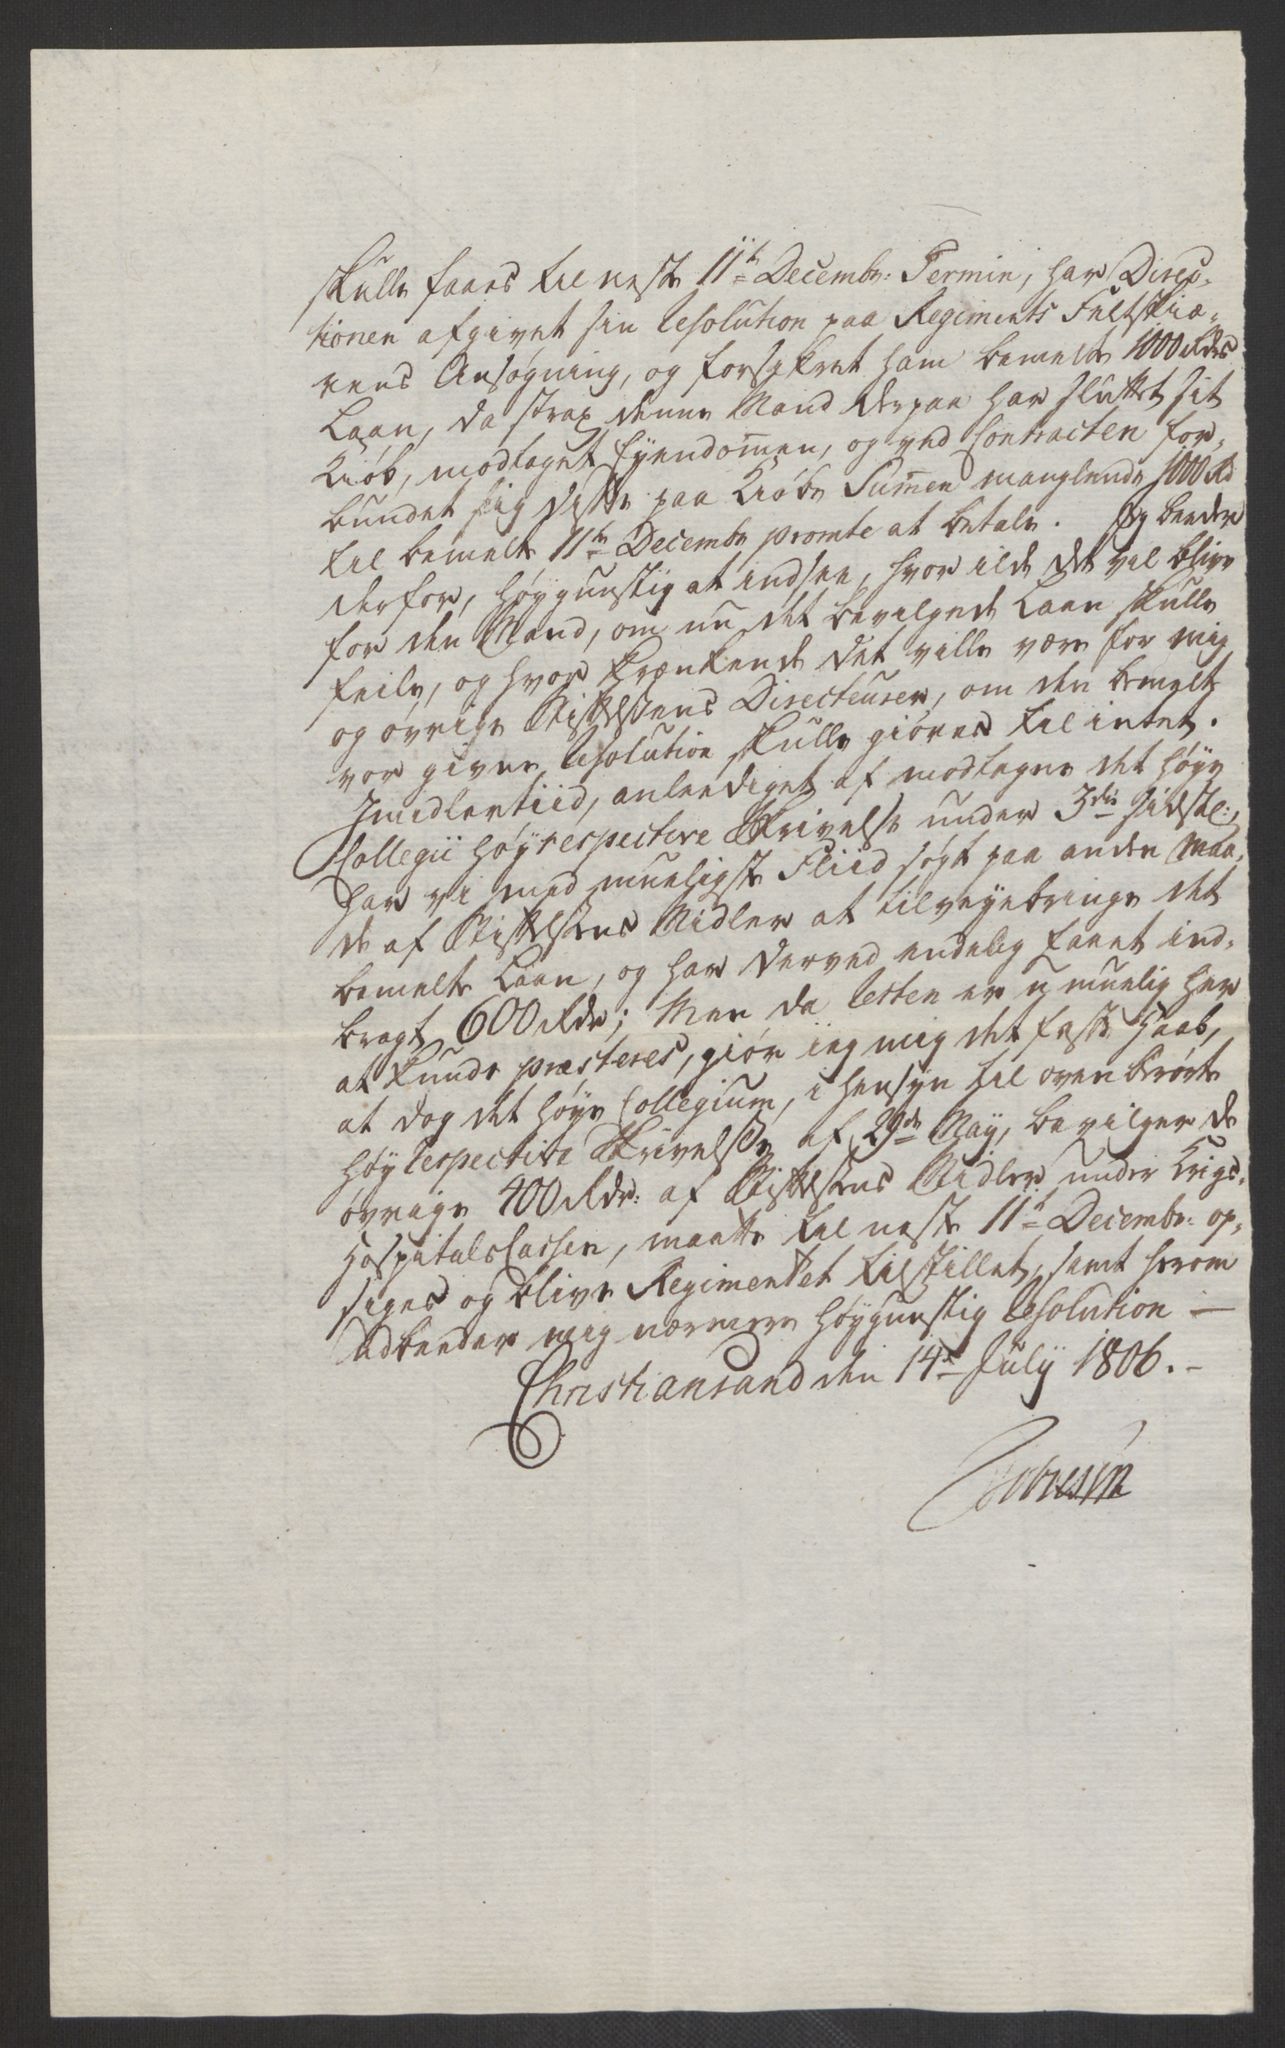 skulle faaes til neste 11te Decembr: Termin, har Direc-
tionen afgivet sin Resolution paa Regiments Feltskiæ-
rens Ansøgning, og forsikret ham bemelte 1000 Rdrs
Laan, da strax denne Mand derpaa har sluttet sit
Kiøb, modtaget Eyendom̄en, og ved Contracten for-
bundet sig dette paa Kiøbe Sum̄en manglende 1000 Rd
til bemelte 11te Decembr promte at betale. Jeg beeder
derfor, høygunstig at indsee, hvor ilde det vil blive
for den Mand, om nu det bevilgede Laan skulle
feile, og hvor krænkende det ville være for mig
og øvrige Stiftelsens Directeurer, om den bemelte
vor given Resolution skulle giøres til intet.
Imidlertiid, anleediget af modtagne det høye
Collegii høyrespective Skrivelse under 3die sidstl:,
har vi med mueligste Fliid søgt paa anden Maa-
de af Stiftelsens Midler at tilveyebringe det
bemelte Laan, og har derved endelig faaet ind-
bragt 600 Rdr; Men da Resten er umuelig her
at kunde præsteres, giør jeg mig det faste Haab,
at dog det høye Collegium, i Hensyn til ovenberørte
høyrespective Skrivelse af 29de May, bevilger de
øvrige 400 Rdr: af Stiftelsens Midler under Krigs-
Hospitals Cassen, maatte til neste 11te Decembr: op-
siges og blive Regimentet tilstillet, samt herom
udbeeder mig nærmere høygunstig Resolution —
Christiansand den 14de July 1806. —